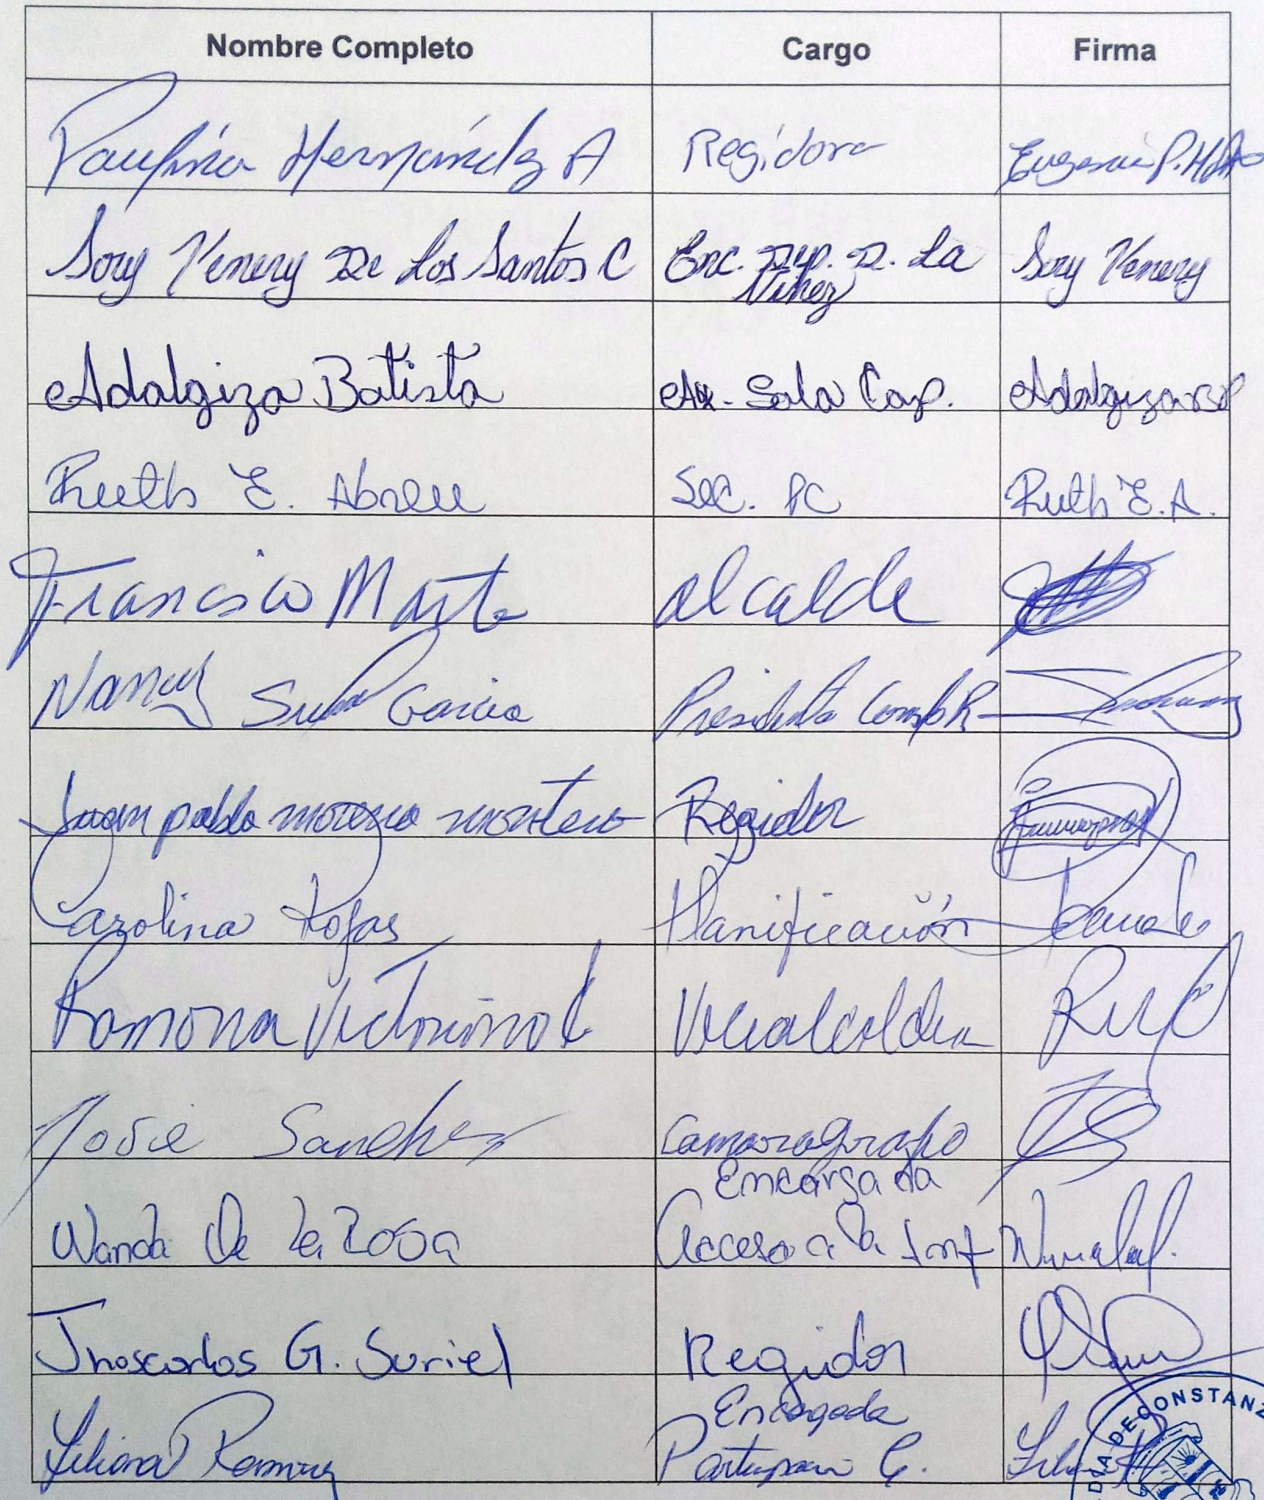 Nombre Completo Cargo Firma
Paulina Hernández A Regidora Eugenia P. H
Sory Venery De Los Santos C Enc. Dep. D. La Sory Venery
Niñez
Adalgiza Batista Ax. Sala Cap. Adalgiza
Ruth E. Abreu Sec. PC Ruth E.A.
Francisco Marte alcalde
Nancy García Presidenta
Juan pablo moreno montero Regidor
Carolina Rojas Planificación
Ramona Victoriano Vicealcaldesa
José Sanchez Camarografo
Encargada
Wanda De La Rosa Acceso a la Inf
Jhoscarlos G. Suriel Regidor
Encargada
Liliana Ramirez C.
DÍA DE CONSTANZ